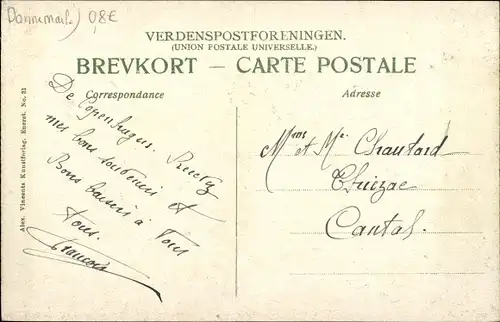 Dannemark) 0,8€
VERDENSPOSTFORENINGEN.
(UNION POSTALE UNIVERSELLE.)
BREVKORT — CARTE POSTALE
Correspondance
Adresse
Alex. Vincents Kunstforlag, Eneret. No. 31
De Copenhague. Recevez
mes bons souvenirs et
Bons baisers à Tous
Tous.
François
Mme et Mr Chautard
Cantal.